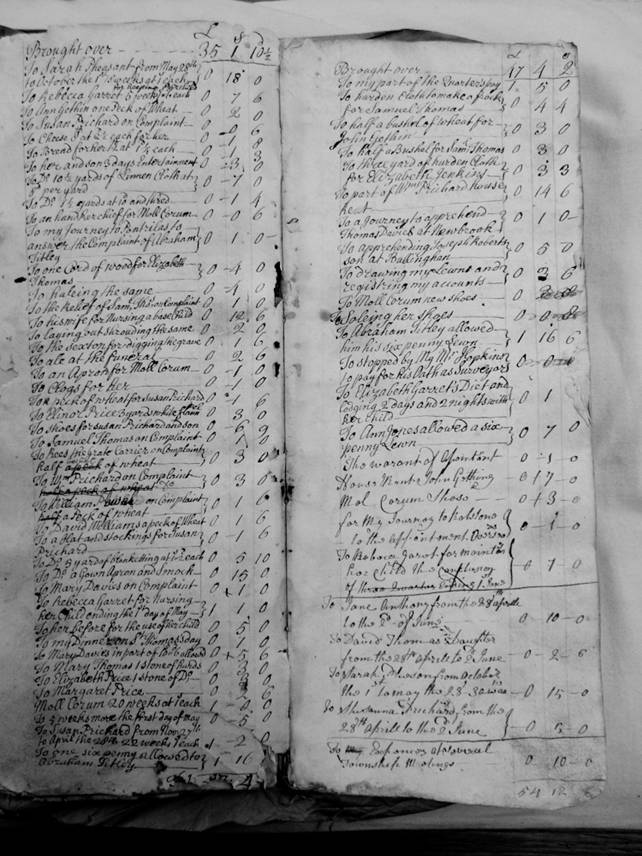 £ s d
Brought over 35 1 10½
To Sarah Pheasant from May 28th
to October the 1st weeks at 1s each 0 18 0
To Rebecca Garret 6 weeks at each 0 7 6
To Ann Gethin one Peck of Wheat 0 2 0
To Susan Prichard on Complaint
To Cheese at 2d each for her 0 0 6
To Bread for her at 1d each 0 1 8
To her and son 3 days Entertainment 0 3 0
To Do 10½ yards of Linnen Cloth at 0 7 0
per yard
To Do 1½ yards at 10 and thred 0 1 4
To an handkerchief for Moll Corum 0 0 6
To my Journey to Pontrilas to
answer the Complaint of Abraham 0 1 0
Titley
To one Cord of wood for Elizabeth 0 4 0
Thomas
To haleing the same 0 4 0
To the Relief of Sam: Thos on Complaint 0 1 0
To his wife for Nursing a base Child 0 12 6
To laying out shrouding the same 0 2 0
To the sexton for digging the grave 1 6
To ale at the funeral 2 6
To an Apron for Moll Corum 1 0
To Clogs for her 0 1 0
To peck of wheat for Susan Prichard 1 6
To Elinor Price 3 yards white flannel 0 3 0
To Shoes for Susan Prichard and son 0 6 9
To Samuel Thomas on Complaint 0
To Rees the grate Carrier on Complaint 0 3 0
half a peck of wheat
To Wm Prichard on Complaint 0 3 0
To William on Complaint 0 1 6
half a Peck of wheat
To David Williams a peck of Wheat 1 6
To a Hat and stockings for Susan 1 6
Prichard
To Do 5 yard of blanketting at 1s 2d each 0 5 10
To Do a Gown Apron and Smock 0 15 0
To Mary Davies on Complaint 0 1 0
To Rebecca Garret for Nursing
her Child ending the 1st day of May 1 1 0
To her before for the use of her child 0 5 0
To my Dinner on St Thomas's day 0 1 0
To Mary Davies in part of allowed 0 5 6
To Mary Thomas 1 stone of hurds 0 3 0
To Elizabeth Price 1 stone of Do 0 3 0
To Margaret Price 6
Moll Corum 20 weeks at 1s each 1 0 0
To 5 weeks more the first day of May 0 5 0
To Susan Prichard from Nov 27th
to April the 28th 22 weeks 1s each 1 2 0
To one six penny allowed to
Abraham Titley 1 16
£ s d
Brought over 47 4 2
To my part of the Quarters pay 1 5 0
To hurden Cloth to make a frock 0 4 4
for Samuel Thomas
To half a bushel of wheat for 0 3 0
John Gethin
To half a Bushel for Saml Thomas 0 3 0
To three yard of hurden Cloth 0 3 3
for Elizabeth Jenkins
To part of Wm Prichard house 0 14 6
Rent
To a Journey to apprehend 0 1 0
Thomas Davies at Newbrook
To apprehending Joseph Robertn 0 5 0
son at Ballinghan
To drawing my Lewns and 0 3 6
registring my accounts
To Moll Corum new shoes 0
To Soleing her Shoes 0 0 8
To Abraham Titley allowed 1 16 6
him his six penny Lewn
To stopped by My Mr Hopkins 0 0
to pay for his Oath as Surveyors
To Elizabeth Garrets Diet and
Lodging 2 days and 2 nights with 0 1
her child
To Ann Jones allowed a six 0 7 0
penny Lewn
The warant of Apointant 0 1 0
House Mante John Gething 0 17 0
Mol Corum Shose 0 3 0
for My Journey to Kalstone 0 1 0
to the appointment Overs
To Rebeca Garot for maintain
her Child the 0 7 0
To Jane Anthony from the 28th aprile
to the 2d of June 0 10 0
To David Thomas Daughter
from the 28th aprile to 2 June 0 2 6
To Sarah from October
the 1 to may the 28 0 15 0
To Shusanna Prichard from the
28th aprile to the 2d June 0 5 0
To Expances at several
Townshipe Metings 0 10 0
54 12 6